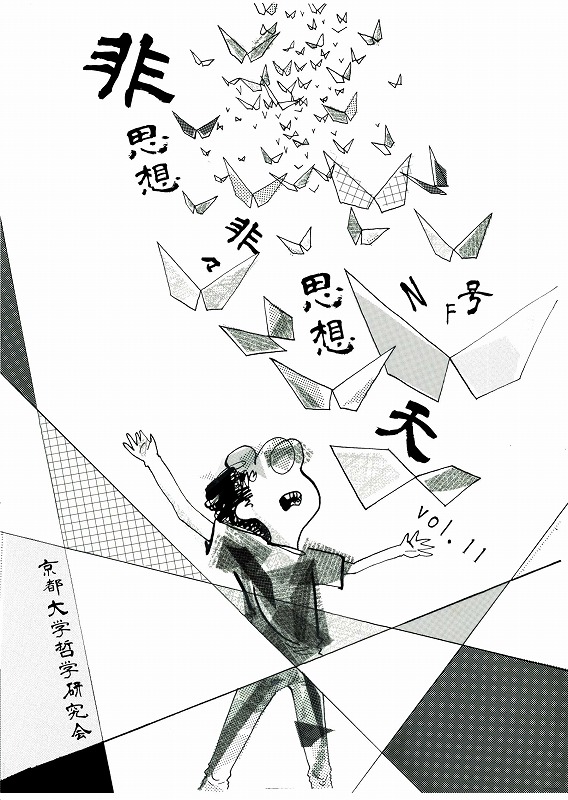 非
思想
非々
思想
天
NF号
vol.11
京都大学哲学研究会